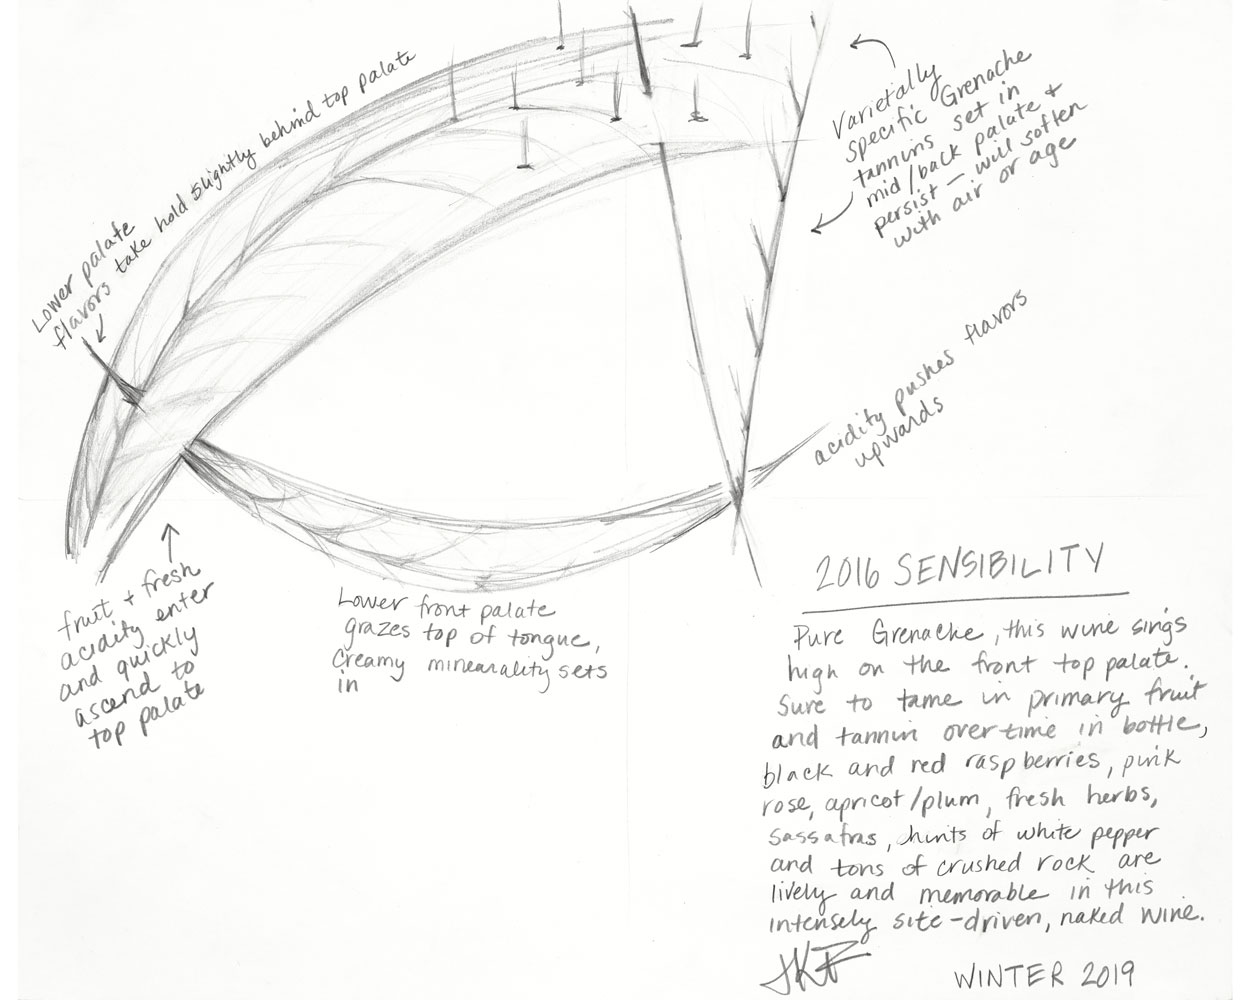 Lower palate
flavors take hold slightly behind top palate
Varietally
specific Grenache
tannins set in
mid/back palate &
persist — will soften
with air or age
acidity pushes flavors
upwards
fruit + fresh
acidity enter
and quickly
ascend to
top palate
Lower front palate
grazes top of tongue,
creamy minearality sets
in
2016 SENSIBILITY
Pure Grenache, this wine sings
high on the front top palate.
Sure to tame in primary fruit
and tannin over time in bottle,
black and red raspberries, pink
rose, apricot/plum, fresh herbs,
sassafras, hints of white pepper
and tons of crushed rock are
lively and memorable in this
intensely site-driven, naked wine.
WINTER 2019